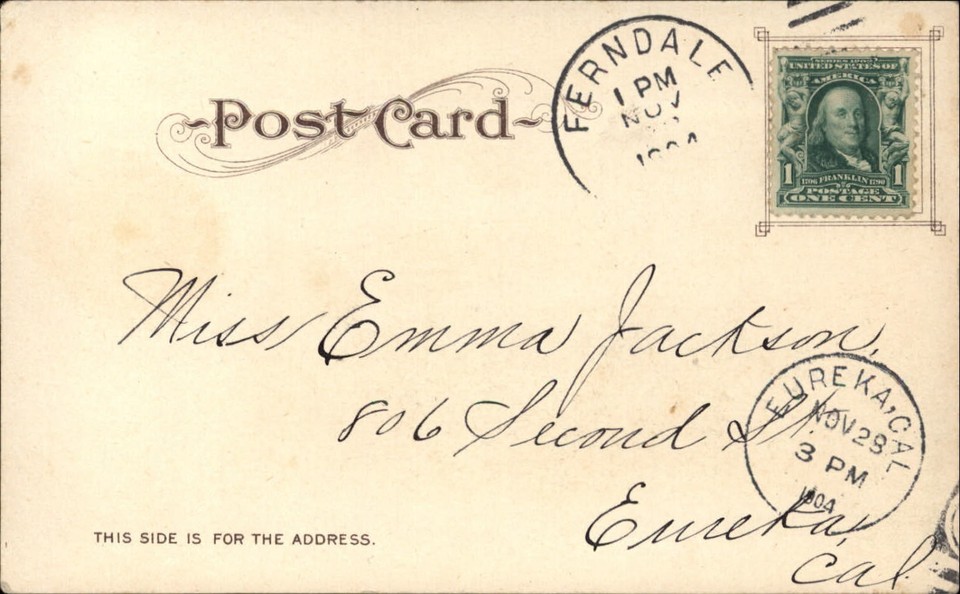 Post Card
FERNDALE
1 PM
NOV
1904
SERIES 1902
UNITED STATES OF
AMERICA
1706 FRANKLIN 1790
1 POSTAGE 1
ONE CENT
Miss Emma Jackson,
806 Second St.
Eureka,
Cal.
EUREKA, CAL
NOV 28
3 PM
1904
THIS SIDE IS FOR THE ADDRESS.